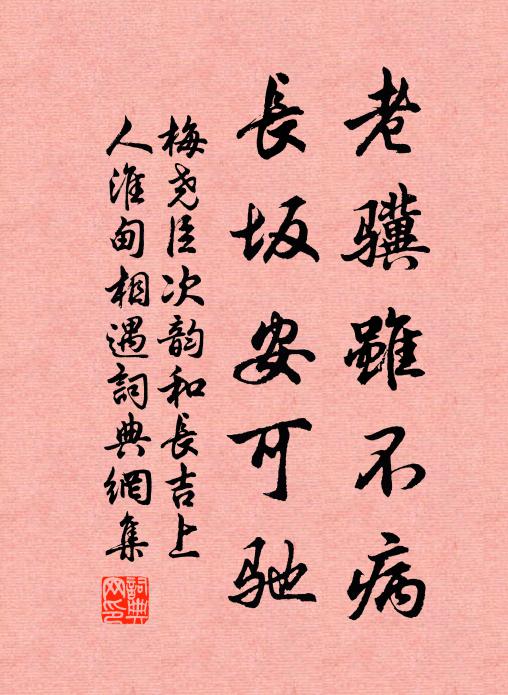 老驥雖不病
長坂安可馳
梅堯臣次韵和長吉上
人淮甸相遇詞典網集
詞典
网印